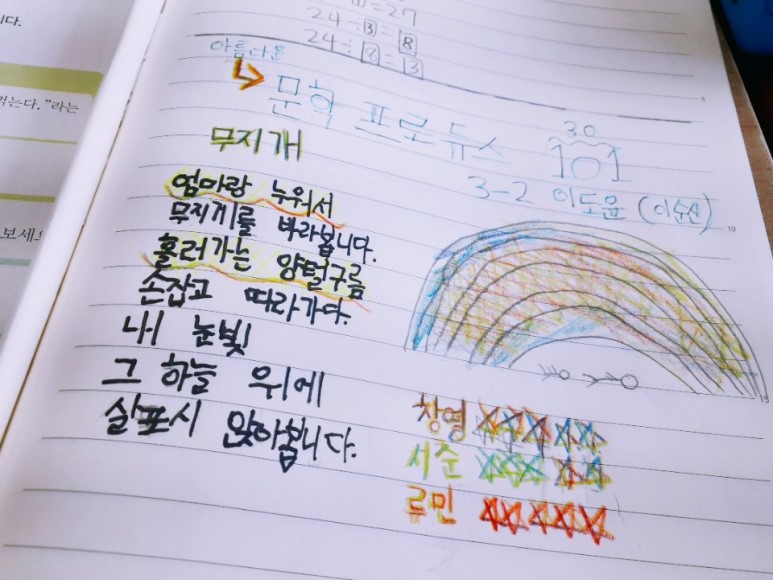 니다.
먹는다. "라는
보세요
24 ÷ 3 = 8
24 ÷ = 13
아름다운
문학 프로듀스 101
30
무지개
3-2 이도윤 (이수신)
엄마랑 누워서
무지개를 바라봅니다.
흘러가는 양털구름
손잡고 따라가다.
내 눈빛
그 하늘 위에
살포시 앉아봅니다.
창영
서준
류민
5
10
15